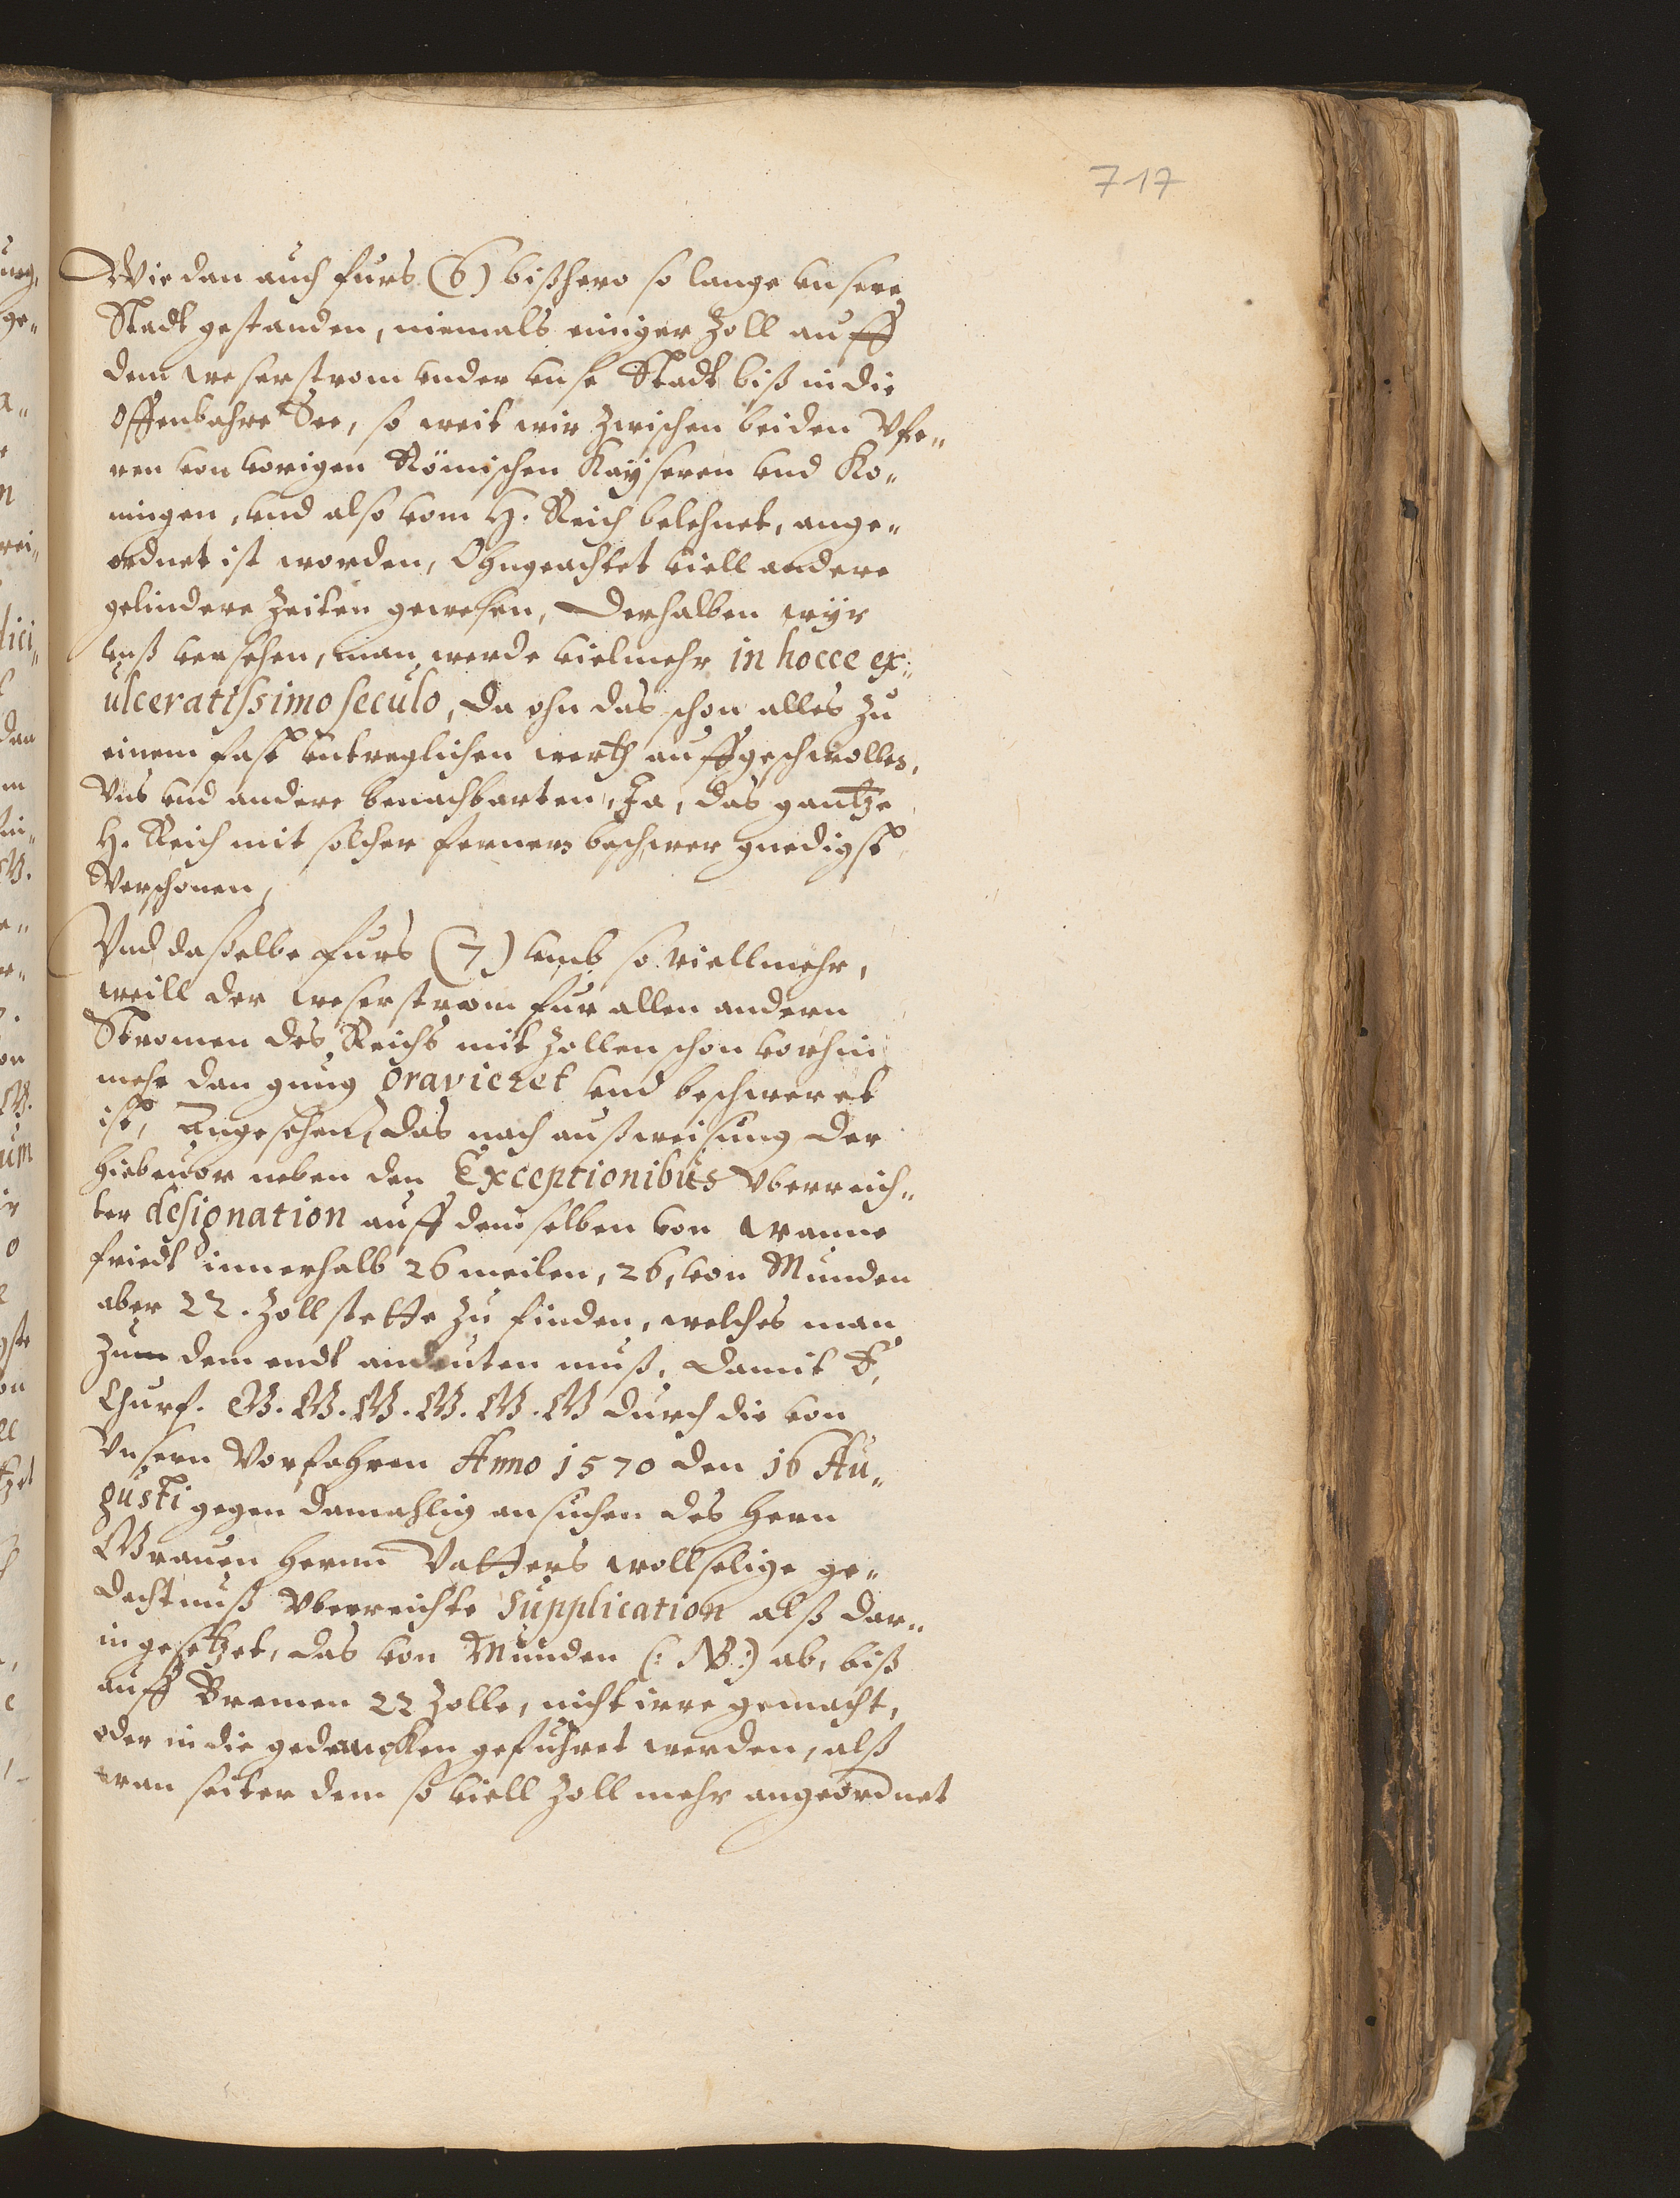 717
Wie dan auch furs (6) bißhero so lange vnsere
Stadt gestanden, niemals einiger Zoll auff
dem weserstrom vnder vnse Stadt biß in die
offenbahre See, so weit wir zwischen beiden Vfe„
ren von vorigen Römischen Kaÿseren vnd Ko„
ningen, vnd also vom H. Reich belehnet, ange„
ordnet ist worden, Ohngeachtet viell andere
gelindere Zeiten gewesen, Derhalben wÿr
vnß versehen, man werde vielmehr in hocce ex„
ulceratissimo seculo, da ohn das schon alles zu
einem fast vntreglichen werth auffgeschwollen,
Vns vnd andere benachbarten, Ja, das gantze
H. Reich mit solcher fernern beschwer gnedigst
Verschonen,
Vnd daßelbe furs (7) vmb so viellmehr,
weill der weserstrom fur allen andern
Stromen des Reichs mit Zollen schon vorhin
mehr dan gnug graviéret vnd beschweret
ist, Angesehen, das nach außweisung der
hiebeuor neben den Exceptionibus vberreich„
ter designation auff demselben von Wanne
friedt innerhalb 26 meilen, 26, von Munden
aber 22. Zollstette zu finden, welches man
zum dem endt andeuten muß, damit E.
Churf. G. G. G. G. G. G durch die von
Vnsern Vorfahren Anno 1570 den 16 Au„
gusti gegen damahlig ansuchen des Hern
Grauen Herrn Vatters wollselige ge„
dechtnuß vberreichte Supplication alß dar„
in gesetzet, das von Munden (: NB:) ab, biß
auff Bremen 22 Zolle, nicht irre gemacht,
oder in die gedancken gefuhret werden, alß
wan seiter dem so viell Zoll mehr angeordnet